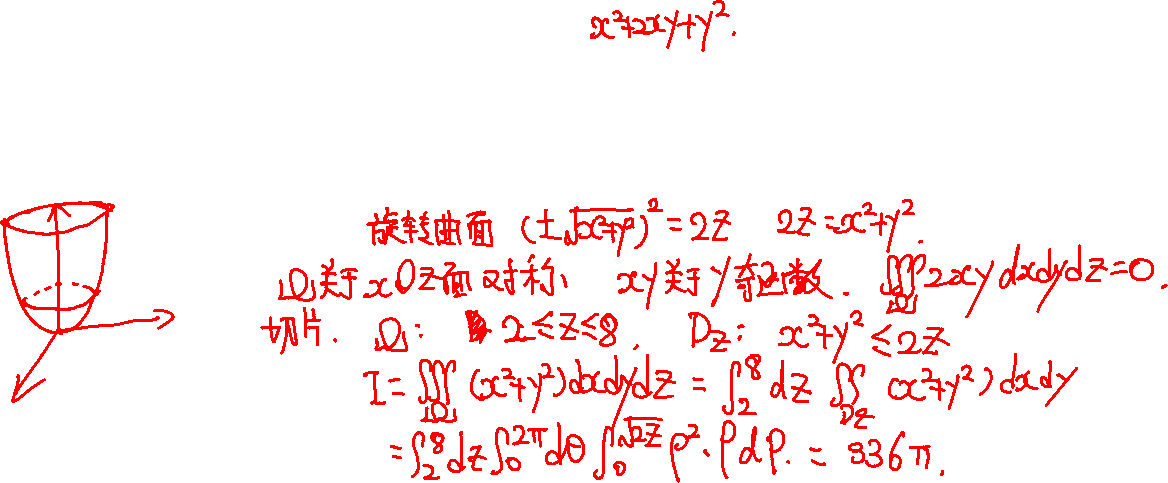 x²+2xy+y².
旋转曲面 (±√(x²+y²))²=2Z 2Z=x²+y².
Ω关于xOz面对称, xy关于y奇函数. ∭_Ω 2xy dxdydz=0.
切片. Ω: 2≤z≤8. D_z: x²+y²≤2z
I=∭_Ω (x²+y²)dxdydz=∫₂⁸dz∬_{Dz}(x²+y²)dxdy
=∫₂⁸dz∫₀^{2π}dθ∫₀^{√2z}ρ²·ρdρ.=336π.